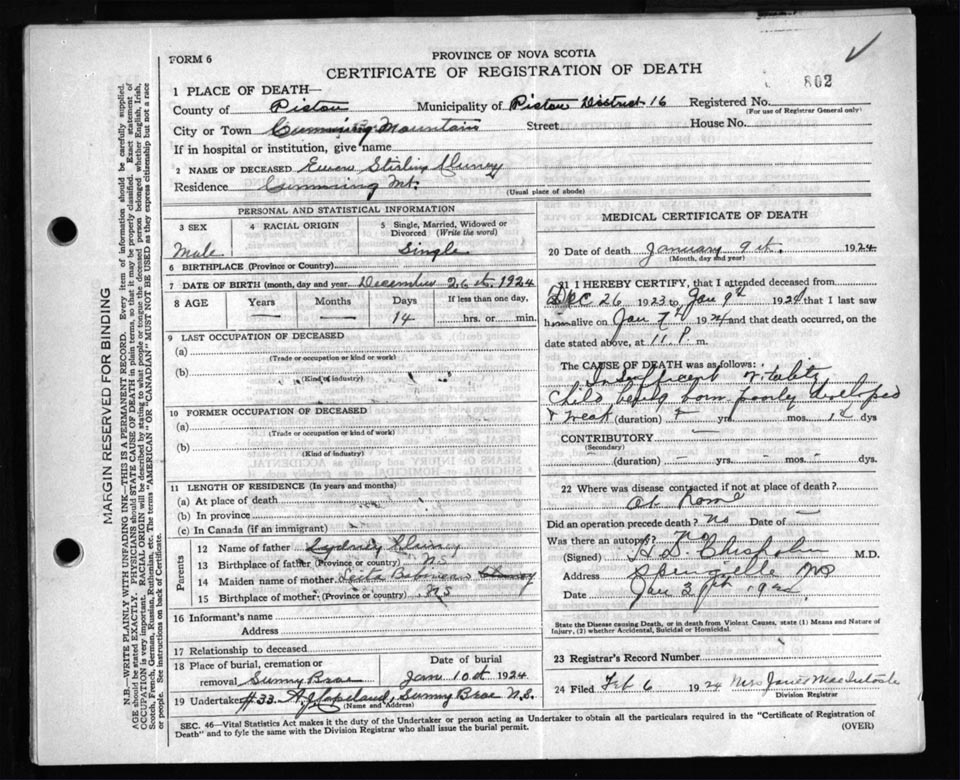 FORM 6
PROVINCE OF NOVA SCOTIA
CERTIFICATE OF REGISTRATION OF DEATH
802
1 PLACE OF DEATH—
County of Pictou Municipality of Pictou District 16 Registered No.
(For use of Registrar General only)
City or Town Cumming Mountain Street House No.
If in hospital or institution, give name
2 NAME OF DECEASED Ewen Stirling
Residence Cumming Mt.
(Usual place of abode)
PERSONAL AND STATISTICAL INFORMATION
3 SEX 4 RACIAL ORIGIN 5 Single, Married, Widowed or Divorced (Write the word)
Male Single
6 BIRTHPLACE (Province or Country)
7 DATE OF BIRTH (month, day and year) December 26th 1924
8 AGE Years Months Days If less than one day,
— — 14 hrs. or min.
9 LAST OCCUPATION OF DECEASED
(a)
(Trade or occupation or kind of work)
(b)
(Kind of industry)
10 FORMER OCCUPATION OF DECEASED
(a)
(Trade or occupation or kind of work)
(b)
(Kind of industry)
11 LENGTH OF RESIDENCE (In years and months)
(a) At place of death
(b) In province
(c) In Canada (if an immigrant)
Parents
12 Name of father Sydney
13 Birthplace of father (Province or country) NS
14 Maiden name of mother
15 Birthplace of mother (Province or country) NS
16 Informant's name
Address
17 Relationship to deceased
18 Place of burial, cremation or removal Sunny Brae Date of burial Jan 10th 1924
19 Undertaker #33 A J Copeland, Sunny Brae N.S.
(Name and Address)
MEDICAL CERTIFICATE OF DEATH
20 Date of death January 9th. 1924
(Month, day and year)
21 I HEREBY CERTIFY, that I attended deceased from
Dec 26 1923 to Jan 9th 1924 that I last saw
h alive on Jan 7th 1924 and that death occurred, on
date stated above, at 11 P. m.
The CAUSE OF DEATH was as follows:
Insufficient vitality
Child being born poorly developed
& weak (duration) — yrs. — mos. 14 dys
CONTRIBUTORY —
(Secondary)
— (duration) — yrs. — mos. — dys.
22 Where was disease contracted if not at place of death?
At home
Did an operation precede death? No Date of —
Was there an autopsy? No
(Signed) H D Chisholm M.D.
Address Springville NS
Date Jan 1924
State the Disease causing Death, or in death from Violent Causes, state (1) Means and Nature of
Injury, (2) whether Accidental, Suicidal or Homicidal.
23 Registrar's Record Number
24 Filed Feb 6 1924 Mrs James MacIntosh
Division Registrar
SEC. 46—Vital Statistics Act makes it the duty of the Undertaker or person acting as Undertaker to obtain all the particulars required in the "Certificate of Registration of
Death" and to fyle the same with the Division Registrar who shall issue the burial permit.
(OVER)
MARGIN RESERVED FOR BINDING
N.B.—WRITE PLAINLY WITH UNFADING INK—THIS IS A PERMANENT RECORD. Every item of information should be carefully supplied.
AGE should be stated EXACTLY. PHYSICIANS should STATE CAUSE OF DEATH in plain terms, so that it may be properly classified. Exact statement of
OCCUPATION is very important. RACIAL ORIGIN will be described by stating to what people or tongue the deceased person belonged whether English, Irish,
Scotch, French, German, Russian, Ruthenian, etc. The terms "AMERICAN" OR "CANADIAN" MUST NOT BE USED as they express citizenship but not a race
or people. See instructions on back of Certificate.